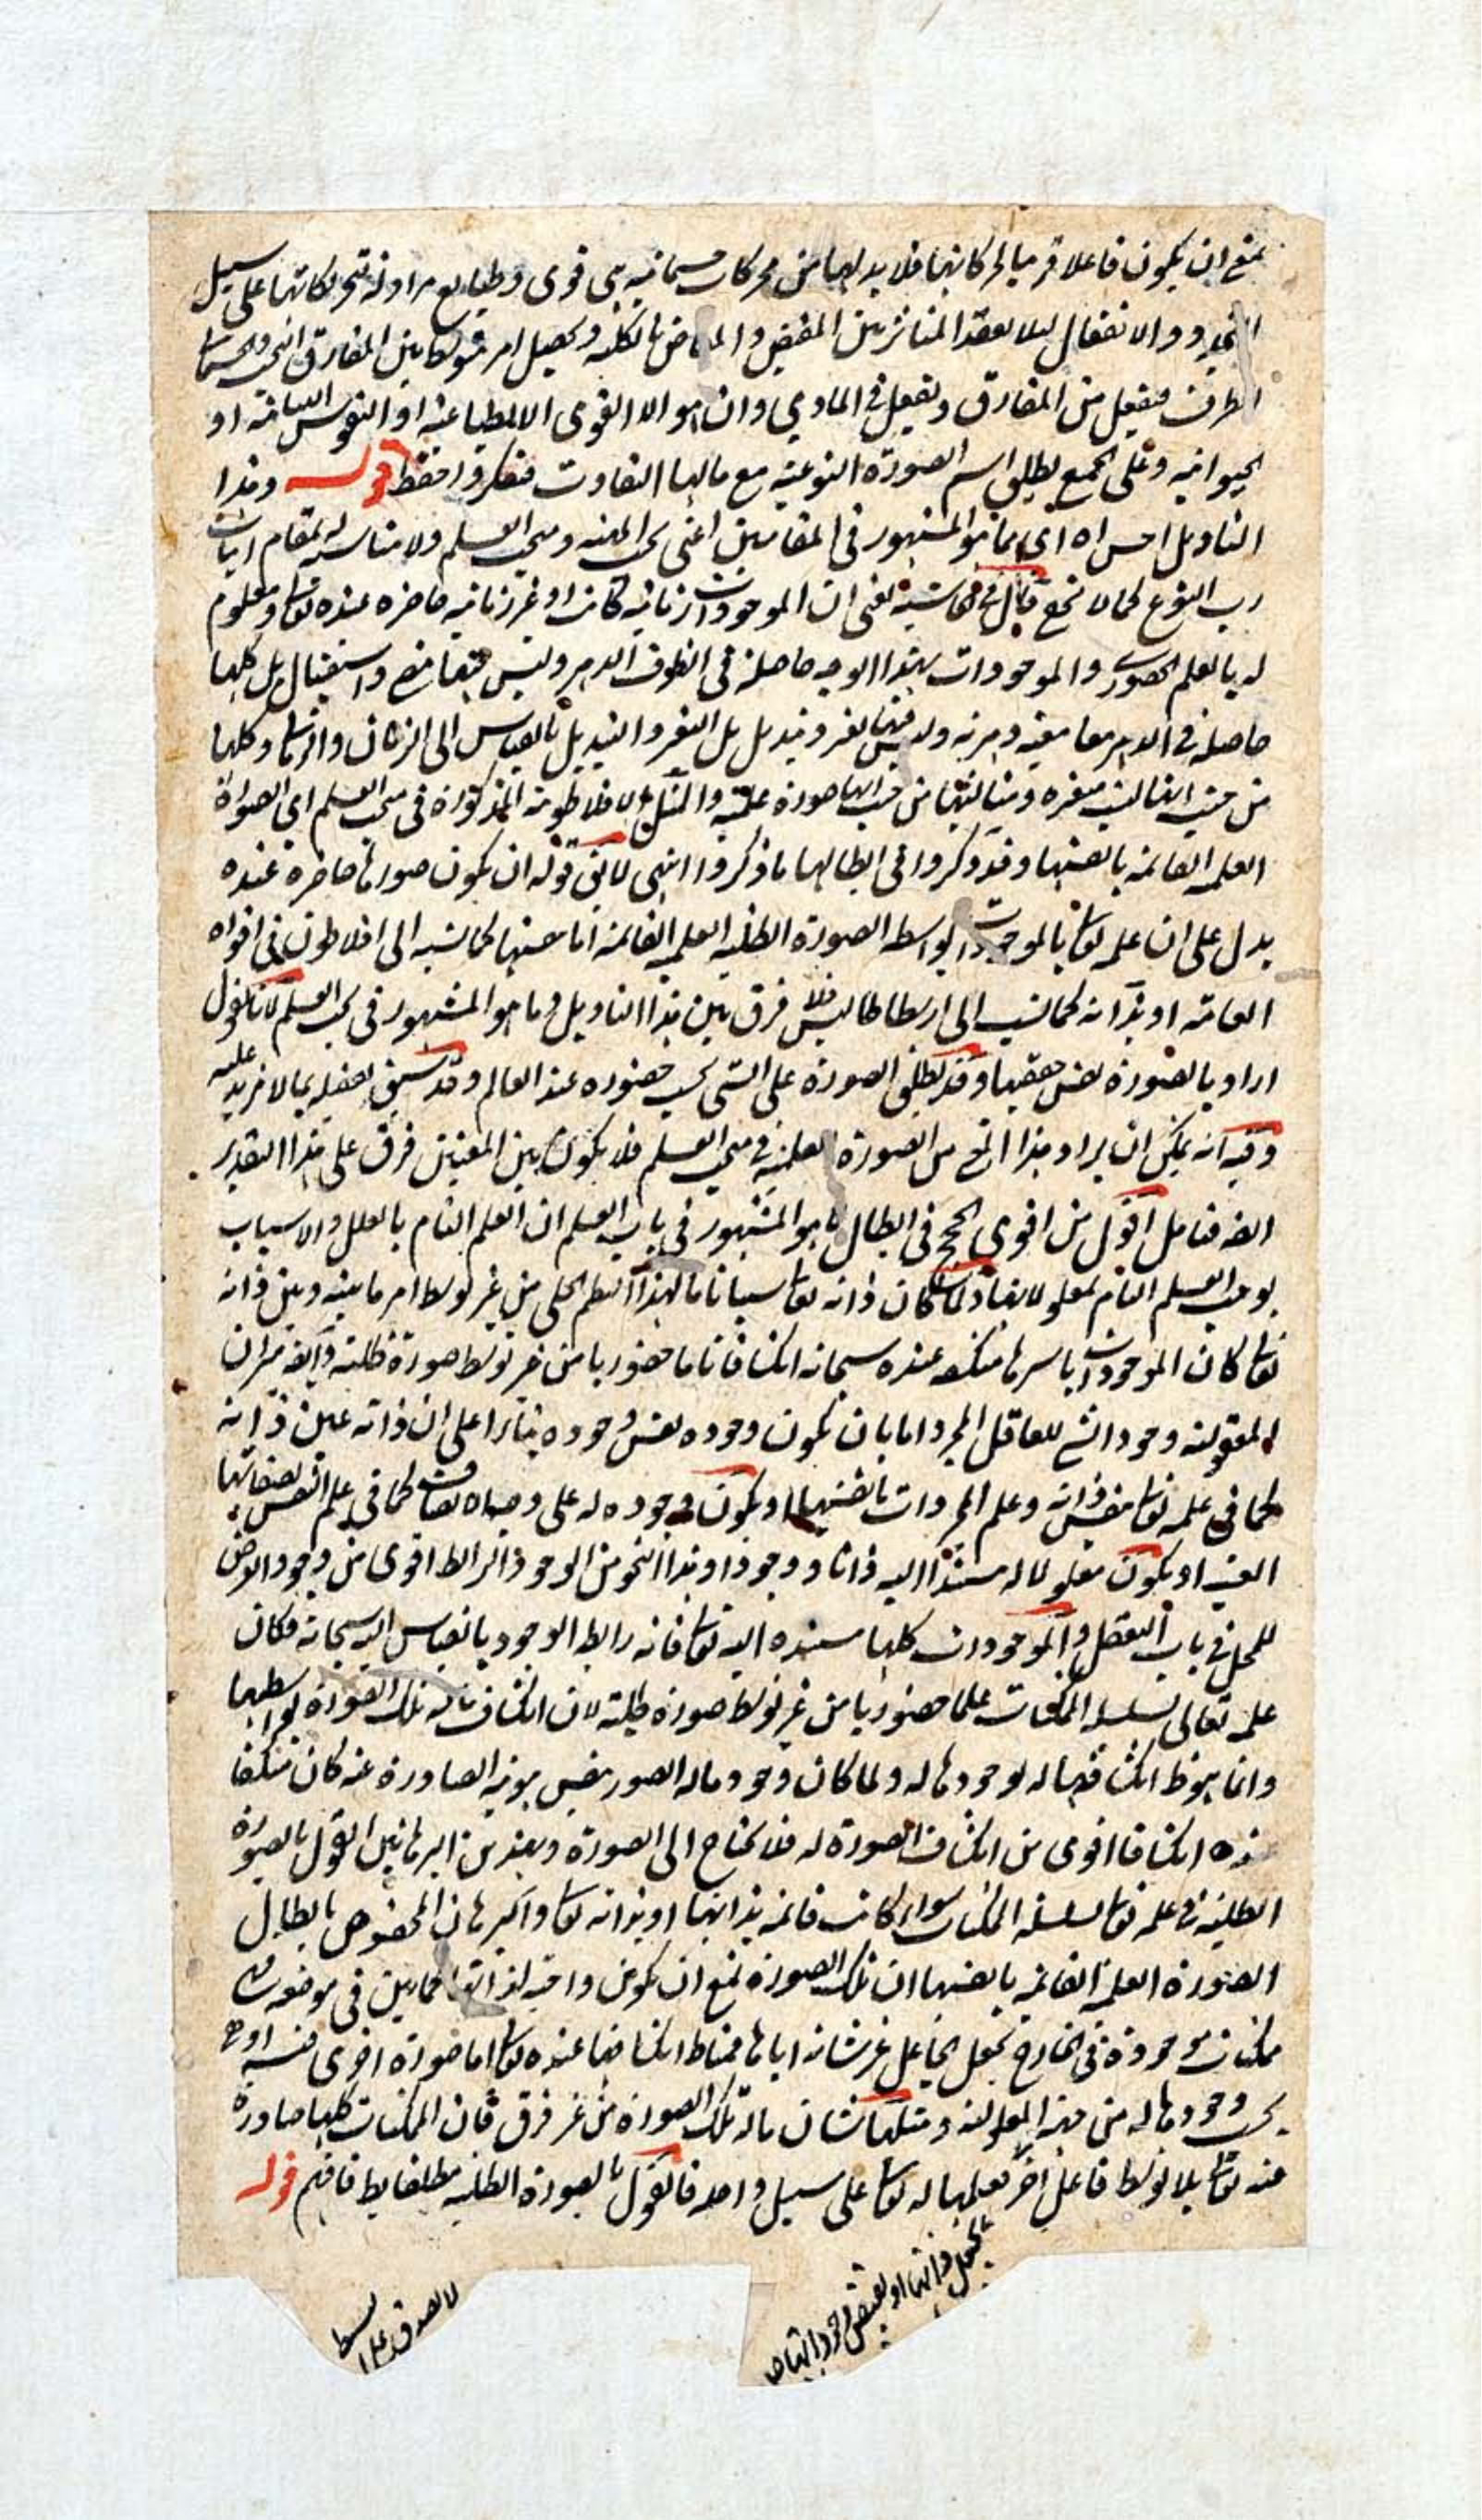 يمتنع ان يكون فاعلا قريبا لحركاتها فلا بد لها من محركات جسمانية هى قوى وطبايع مزاولة لتحريكاتها على سبيل
التجدد والانفعال لئلا يفقد المناسبة بين المفيض والمفاض بالكلية ويحصل امر متوسط بين المفارق
الطرفين منفعل من المفارق ويفعل فى المادي وان هو الا القوى الانطباعية او النفوس النباتية او
الحيوانية وعلى الجميع يطلق اسم الصورة النوعية مع مالها التفاوت فتفكر واحفظ قوله وهذا
التاويل احس اه اى مما هو المشهور فى المقامين اعنى بحث المهية ومبحث العلم ولا مناسبة لمقام اثبات
رب النوع كما لا يخفى قال فى الحاشية يعنى ان الموجودات زمانية كانت او غير زمانية حاضرة عنده تعالى ومعلوم
له بالعلم الحضورى والموجودات بهذا الوجه حاصلة فى الظرف الدهر وليس فيها مضى واستقبال بل كلها
حاصلة فى الدهر معا معية دهرية وليس فيها تغير وتبديل بل التغير والتبديل بالقياس الى الزمان والزمانيات وكلها
من حيث انها ليست متغيرة ومتبدلة من حيث انها صورة علمية والمثل الافلاطونية المذكورة فى مبحث العلم اى الصورة
العلمية القائمة بانفسها وقد ذكروا فى ابطالها ما ذكروا انتهى لا يقال قوله ان يكون صورها حاضرة عنده
يدل على ان علمه تعالى بالموجودات بواسطة الصورة الظلية العلمية القائمة اما بنفسها كما نسبه الى افلاطون فى افواه
العامة او بذاته كما نسب الى ارسطاطاليس فلا فرق بين هذا التاويل وما هو المشهور فى بحث العلم لانا نقول
اراد بالصورة نفس حقيقتها وقد يطلق الصورة على الشئ بحسب حضوره عند العالم وقد سبق تفصيله بما لا مزيد عليه
وفيه انه يمكن ان يراد هذا المعنى من الصورة العلمية فى مبحث العلم فلا يكون بين المعنيين فرق على هذا التقدير
ايضا فتامل اقول من اقوى الحجج فى ابطال ما هو المشهور فى باب العلم ان العلم التام بالعلل والاسباب
يوجب العلم التام لمعلولاتها ولما كان ذاته تعالى سببا تاما لهذا النظم الجملى من غير توسط امر ما بينه وبين ذاته
تعالى كان الموجودات باسرها منكشفة عنده سبحانه انكشافا تاما حضوريا من غير توسط صورة ظلية وايضا ميزان
المعقولية وجود الشئ للعاقل المجرد اما بان يكون وجوده نفس وجوده بناءا على ان ذاته عين ذاته
كما فى علمه تعالى بنفس ذاته وعلم المجردات بانفسها او يكون وجوده له على وجه كما فى علم النفس بصفاتها
او يكون معلولا له مستندا اليه ذاتا ووجودا وهذا النحو من الوجود الرابط اقوى من وجود العرض
للمحل فى باب التعقل والموجودات كلها مستندة اليه تعالى فانه رابط الوجود بالقياس اليه سبحانه فكان
علمه تعالى بسلسلة الممكنات علما حضوريا من غير توسط صورة ظلية لان انكشاف ماله تلك الصورة بواسطتها
وانما هو مناط انكشافها له لوجودها له ولما كان وجود ماله الصور بنفس هويته الصادرة عنه كان منكشفا
عنده انكشافا اقوى من انكشاف الصورة له فلا يحتاج الى الصورة وبهذين البرهانين القول بالصورة
الظلية فى علمه تعالى بسلسلة الممكنات سواء كانت قائمة بذاتها او بذاته تعالى والبرهان المخصوص بابطال
الصورة العلمية القائمة بانفسها ان تلك الصورة يمتنع ان يكون واجبة لذاتها كما بين فى موضعه فهى
ممكنات موجودة فى الخارج بجعل الجاعل عز شانه اياها فمناط انكشافها عنده تعالى اما صورة اخرى او هى
بحسب وجودها له من جهة المعلولية ومثلها شان ماله تلك الصورة من غير فرق فان الممكنات كلها صادرة
عنه تعالى بلا توسط فاعل اخر فعلمها له تعالى على سبيل واحد فالقول بالصورة الظلية مطلقا باطل فافهم قوله